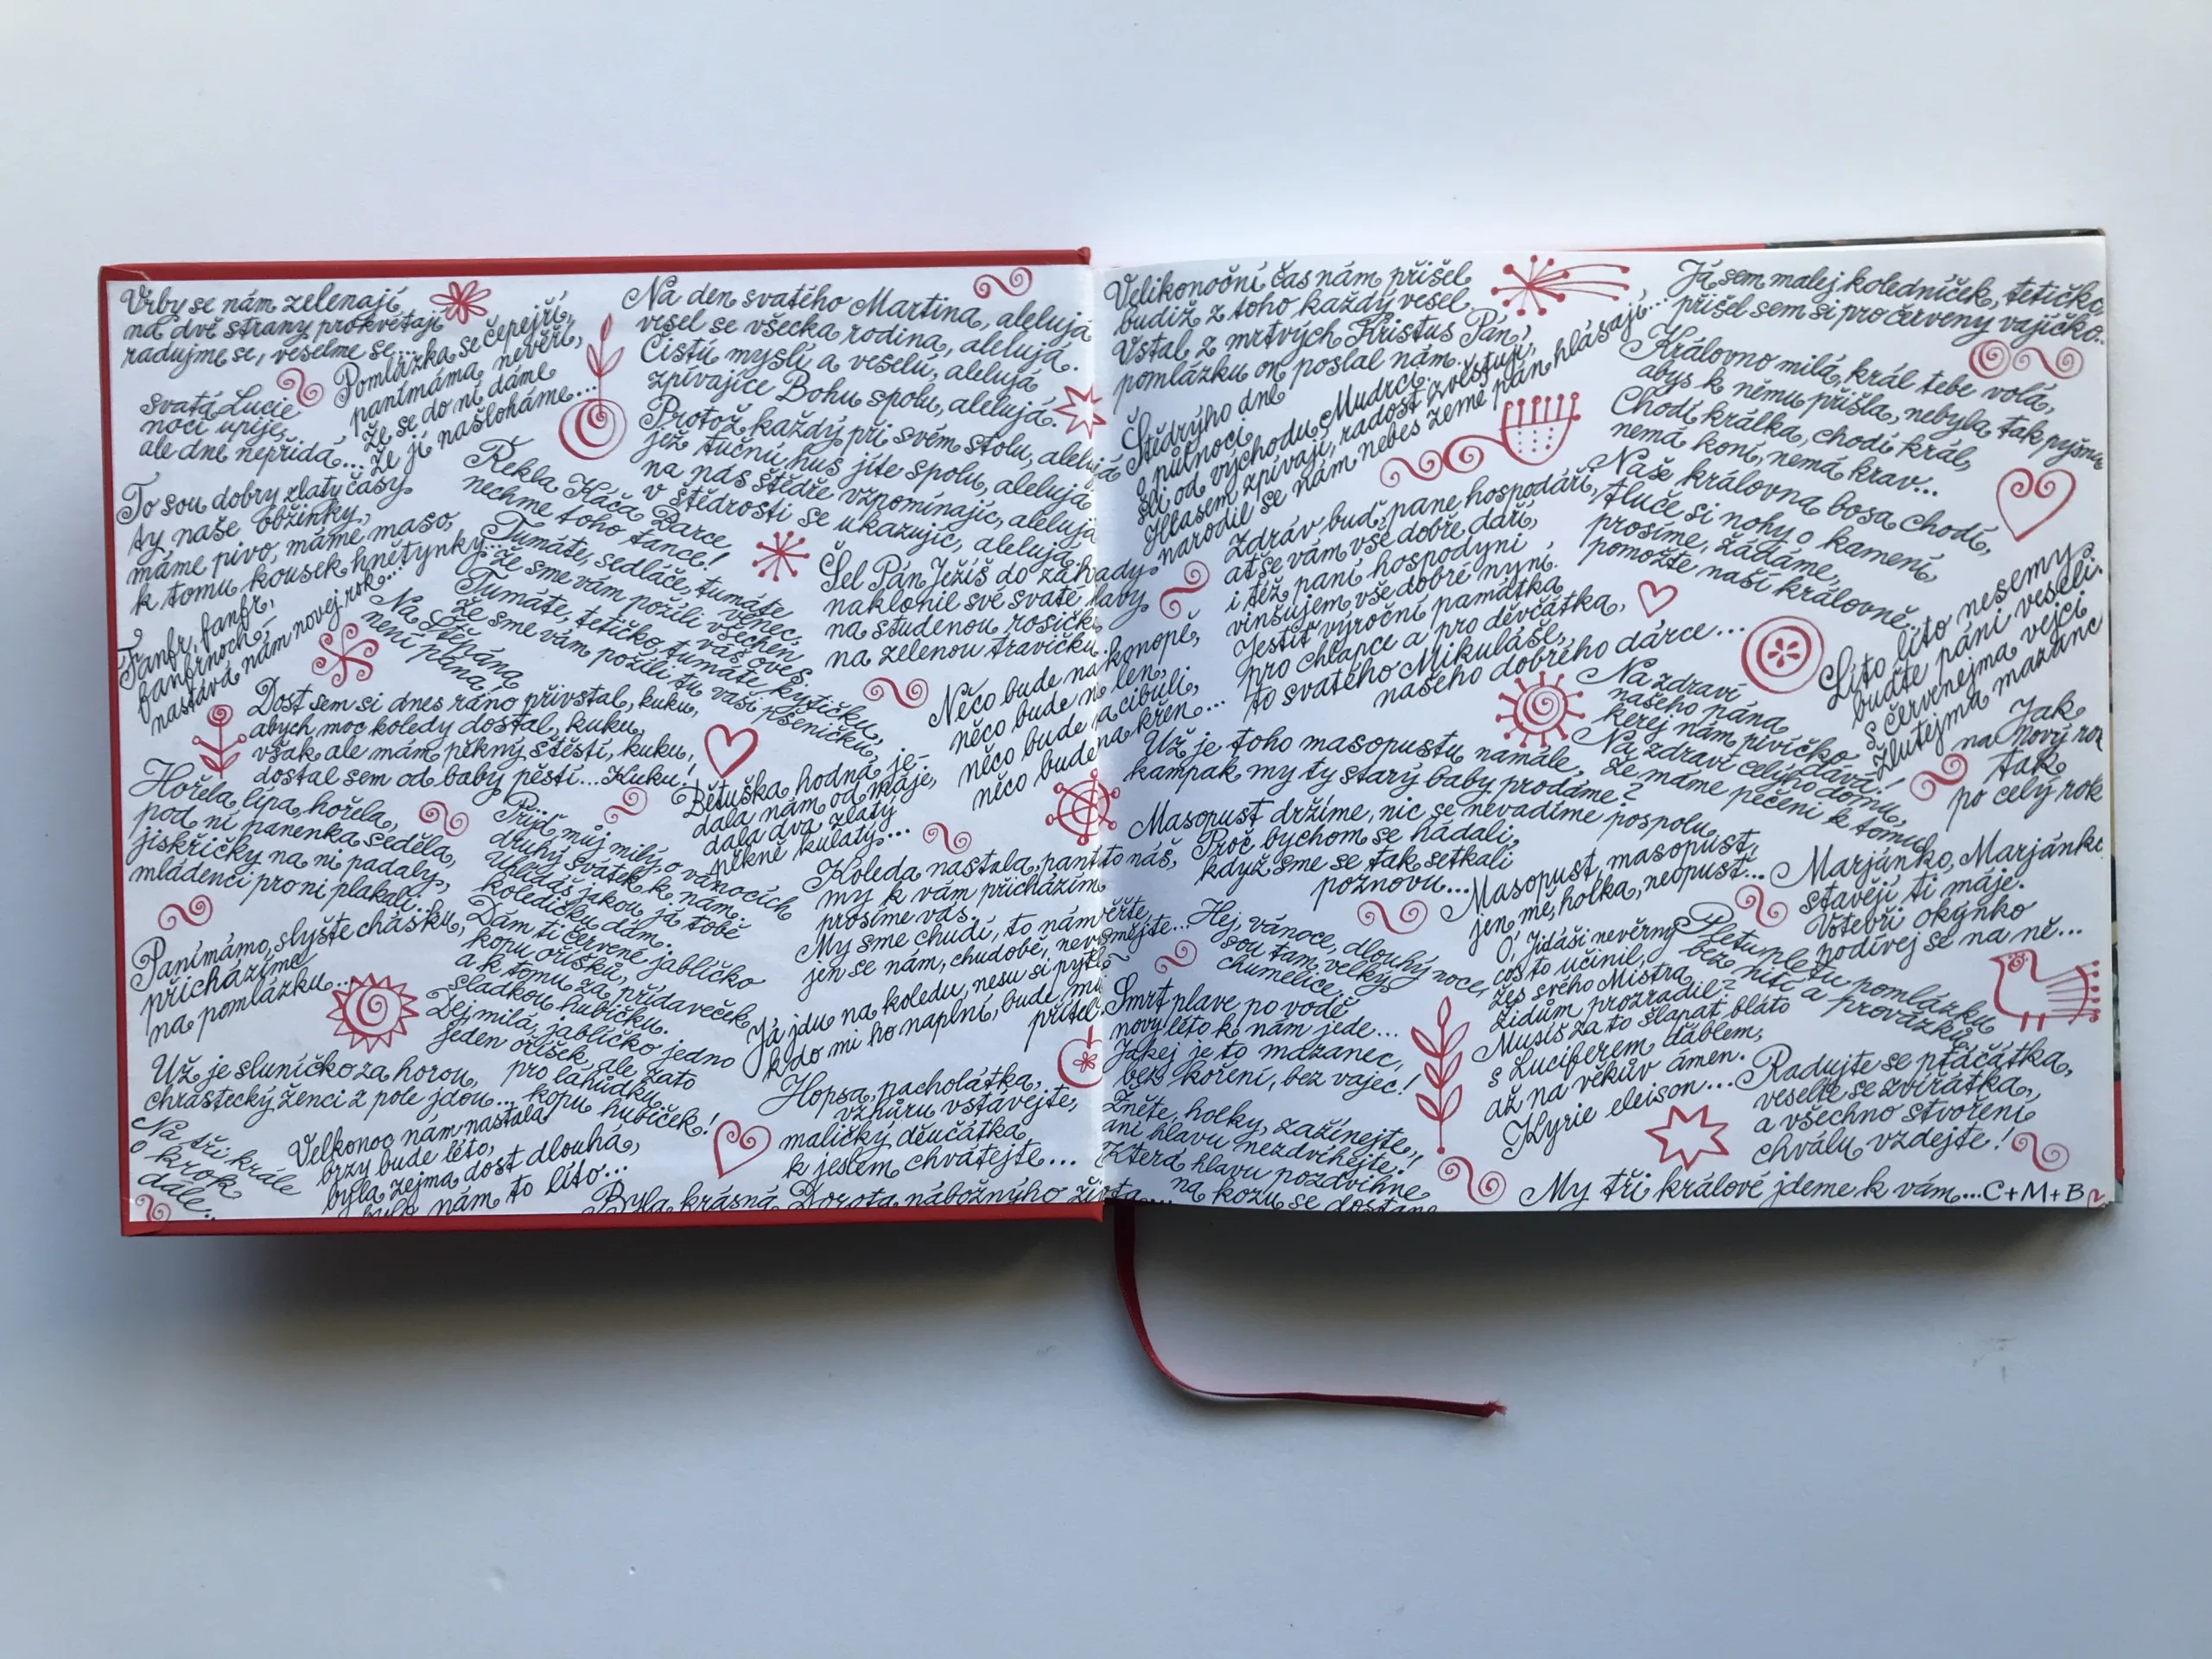 Vrby se nám zelenají,
na dvě strany prokvétají
radujme se, veselme se...
Pomlázka se čepejří,
panímáma nevěří,
že se do ní dáme
že jí našloháme...
svatá Lucie
noci upije,
ale dne nepřidá...
To sou dobry zlaty časy
ty naše obžinky,
máme pivo, máme maso,
k tomu kousek hnětynky...
Fanfr, fanfr,
fanfrnoch,
nastává nám novej rok...
Na Štěpána
není pána
Řekla Káča Barce,
nechme toho tance!
Tumáte, sedláče, tumáte věnec,
že sme vám požili všechen váš oves.
Tumáte, tetičko, tumáte kytičku,
že sme vám požili tu vaši pšeničku.
Na den svatého Martina, alelujá
vesel se všecka rodina, alelujá.
Čistú myslí a veselú, alelujá
zpívajíce Bohu spolu, alelujá.
Protož každý při svém stolu, alelujá
jež tučnú hus jíte spolu, alelujá
na nás štědře vzpomínajíc, alelujá
v štědrosti se ukazujíc, alelujá.
Šel Pán Ježíš do záhrady
naklonil své svaté hlavy
na studenou rosičku
na zelenou travičku.
Něco bude na konopě,
něco bude na len,
něco bude na cibuli,
něco bude na křen...
Dost sem si dnes ráno přivstal, kuku,
abych moc koledy dostal, kuku,
však ale mám pěkný štěstí, kuku,
dostal sem od baby pěstí... Kuku!
Hořela lípa, hořela,
pod ní panenka seděla,
jiskřičky na ni padaly,
mládenci pro ni plakali.
Bětuška hodná je
dala nám od máje,
dala dva zlatý
pěkně kulatý...
Přijď, můj milý, o vánocích
druhý svátek k nám.
Uhlídáš jakou já tobě
koledičku dám.
Dám ti červené jablíčko
kopu oříšků,
a k tomu za přídaveček
sladkou hubičku.
Dej milá, jablíčko jedno
jeden oříšek, ale zato
pro láhůdku
kopu hubiček!
Koleda nastala, páni to náš,
my k vám přicházíme
prosíme vás.
My sme chudí, to nám věřte,
jen se nám, chudobě, nevsmějte...
Já jdu na koledu, nesu si pytel
kdo mi ho naplní, bude můj
přítel.
Panímámo, slyšte chásku,
přicházíme
na pomlázku...
Už je sluníčko za horou,
chrástecký ženci z pole jdou...
Na tři krále
o krok
dále...
Velkonoc nám nastala
brzy bude léto,
byla zejma dost dlouhá,
bylo nám to líto...
Hopsa, pacholátka,
vzhůru vstávejte,
maličký děučátka
k jeslem chvátejte...
Byla krásná Dorota nábožnýho života...
Velikonoční čas nám přišel
budiž z toho každý vesel
Vstal z mrtvých Kristus Pán,
pomlázku on poslal nám.
Štědrýho dne
o půlnoci
šli od východu Mudrci.
Hlasem zpívají, radost zvěstují,
narodil se nám nebes země pán hlásají...
Já sem malej koledníček, tetičko,
přišel sem si pro červeny vajíčko...
Královno milá, král tebe volá,
abys k němu přišla, nebyla tak pyšná
Chodí králka, chodí král,
nemá koní, nemá krav...
Naše královna bosa chodí,
tluče si nohy o kamení,
prosíme, žádáme,
pomožte naší královně...
Zdráv buď pane hospodáři,
ať se vám vše dobře daří,
i též paní hospodyni
vinšujem vše dobré nyní.
Jestiť výroční památka
pro chlapce a pro děvčátka,
to svatého Mikuláše,
našeho dobrého dárce...
Líto líto nesemy,
buďte páni veseli.
S červenejma vejci
žlutejma mazanc
Na zdraví
našeho pána
kerej nám pivíčko dává!
Na zdraví celýho domu,
že máme pečení k tomu
Jak
na Nový rok
tak
po celý rok
Už je toho masopustu namále,
kampak my ty starý baby prodáme?
Masopust držíme, nic se nevadíme pospolu.
Proč bychom se hádali,
když sme se tak setkali
poznovu...
Masopust, masopust,
jen mě, holka, neopust...
Marjánko, Marjánko
stavějí ti máje.
Votevři okýnko
podívej se na ně...
Hej, vánoce, dlouhý noce,
sou tam velký
chumelice.
Ó, Jidáši nevěrný
cos to učinil,
žes svého Mistra
židům prozradil?
Musíš za to šlapat bláto
s Luciferem ďáblem,
až na věkův ámen.
Kyrie eleison...
Pletu pletu pomlázku
bez nití a provázku
Smrt plave po vodě
nový léto k nám jede...
Jakej je to mazanec,
bez koření, bez vajec!
Žněte, holky, zažínejte,
ani hlavu nezdvihejte!
Která hlavu pozdvihne
na kozu se dostane
Radujte se ptáčátka,
veselte se zvířátka,
a všechno stvoření
chválu vzdejte!
My tři králové jdeme k vám... C+M+B